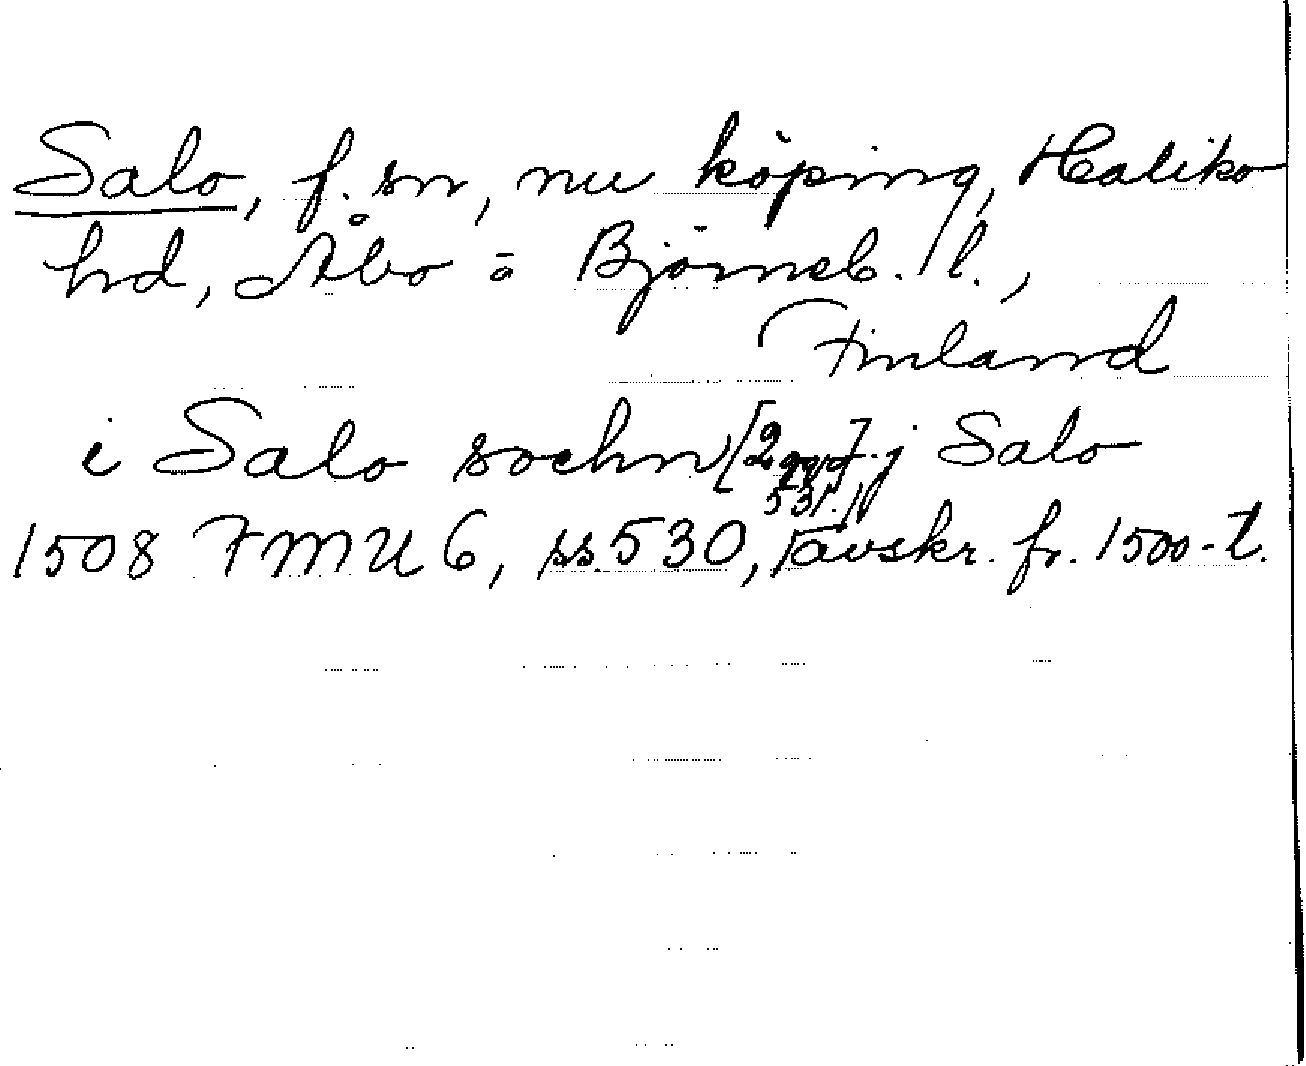 Salo, f. sn, nu köping, Haliko
hd, Åbo o Björneb. l.,
Finland
i Salo sochn [2 ggr]. j Salo
531.
1508 FMU 6, ss. 530, avskr. fr. 1500-t.